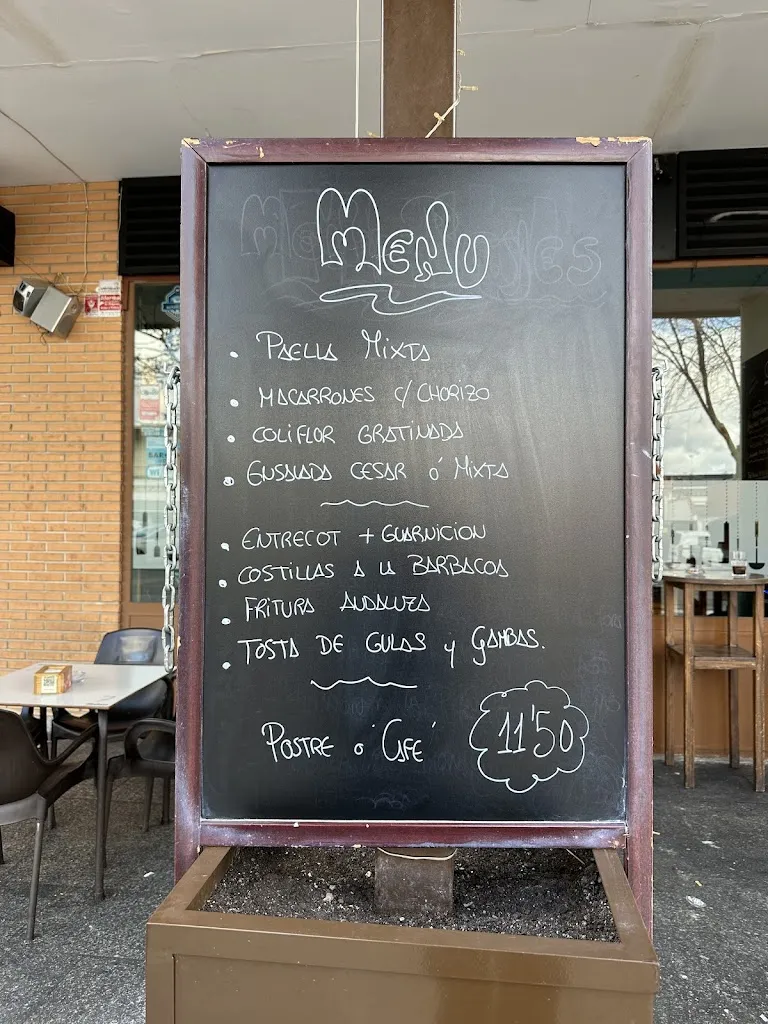 MENU
• PAELLA MIXTA
• MACARRONES C/ CHORIZO
• COLIFLOR GRATINADA
• ENSALADA CESAR Ó MIXTA
• ENTRECOT + GUARNICION
• COSTILLAS A LA BARBACOA
• FRITURA ANDALUZA
• TOSTA DE GULAS y GAMBAS.
POSTRE o´ CAFE´
11'50